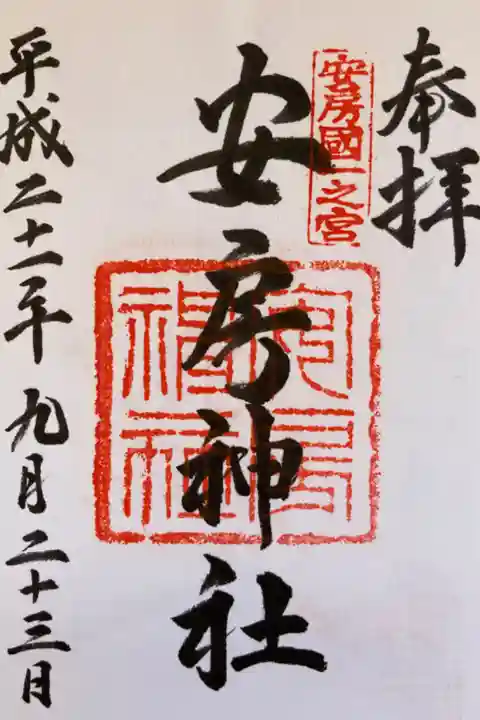 奉拝
安房國一之宮
安房神社
平成二十一年九月二十三日